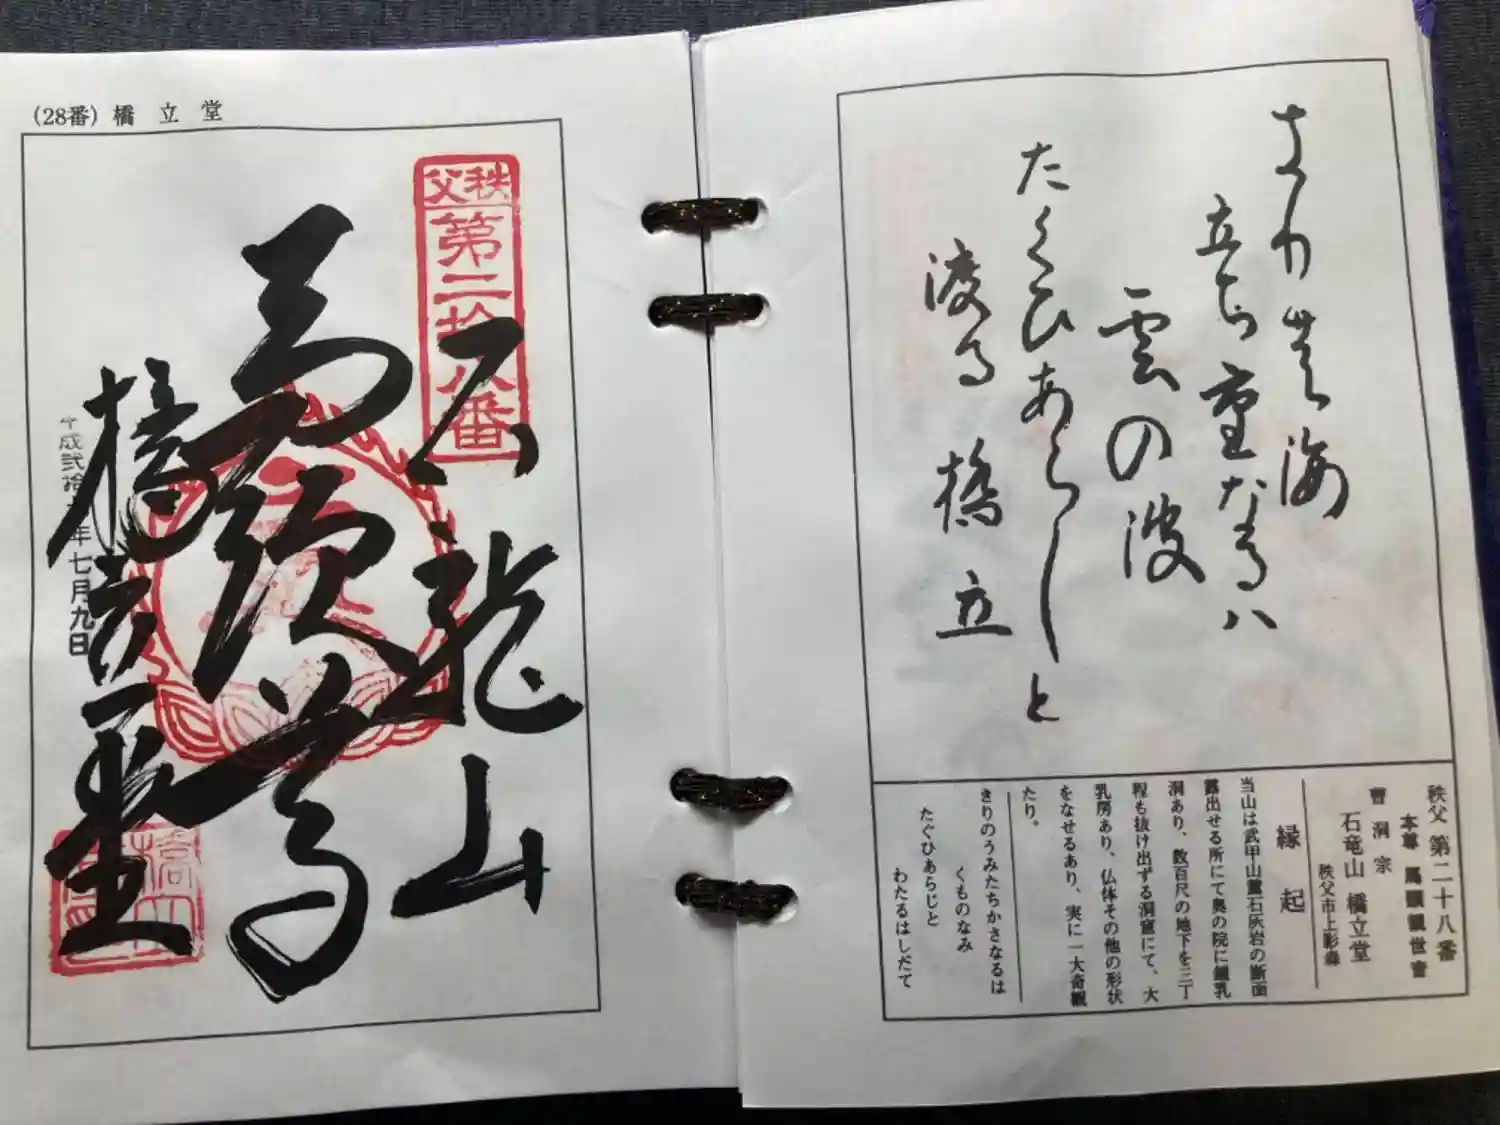 (28番) 橋立堂
秩父
第二拾八番
石龍山
馬頭尊
橋立堂
七月九日
きり乃海
立ち重なるハ
雲の波
たくひあらしと
渡る橋立
秩父 第二十八番
本尊 馬頭観世音
曹洞宗
石竜山 橋立堂
秩父市上影森
縁起
当山は武甲山麓石灰岩の断面
露出せる所にて奥の院に鍾乳
洞あり、数百尺の地下を三丁
程も抜け出ずる洞窟にて、大
乳房あり、仏体その他の形状
をなせるあり、実に一大奇観
たり。
きりのうみたちかさなるは
くものなみ
たぐひあらじと
わたるはしだて